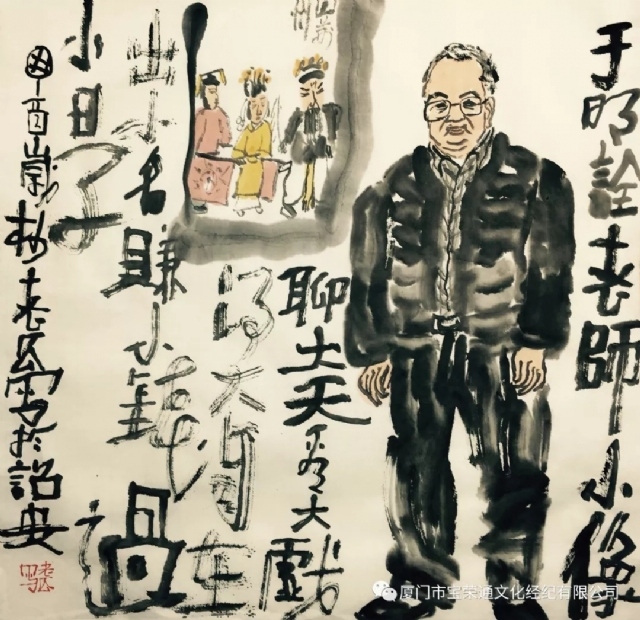 于明詮老師小像
聊土天看大戲
得大自在
出小名賺小錢過
小日子
酉歲杪老民寫於詔安
厦门市宝荣通文化经纪有限公司